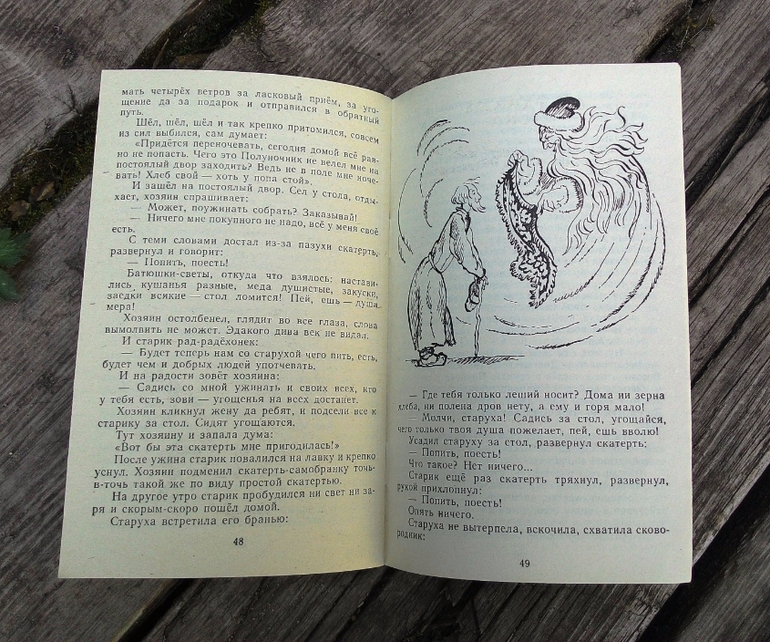 мать четырёх ветров за ласковый приём, за уго-
щение да за подарок и отправился в обратный
путь.
Шёл, шёл, шёл и так крепко притомился, совсем
из сил выбился, сам думает:
«Придётся переночевать, сегодня домой всё рав-
но не попасть. Чего это Полуночник не велел мне на
постоялый двор заходить? Ведь не в поле мне ноче-
вать! Хлеб свой — хоть у попа стой».
И зашёл на постоялый двор. Сел у стола, отды-
хает, хозяин спрашивает:
— Может, поужинать собрать? Заказывай!
— Ничего мне покупного не надо, всё у меня своё
есть.
С теми словами достал из-за пазухи скатерть,
развернул и говорит:
— Попить, поесть!
Батюшки-светы, откуда что взялось: настави-
лись кушанья разные, меда душистые, закуски,
заедки всякие — стол ломится! Пей, ешь — душа
мера!
Хозяин остолбенел, глядит во все глаза, слова
вымолвить не может. Эдакого дива век не видал.
И старик рад-радёхонек:
— Будет теперь нам со старухой чего пить, есть,
будет чем и добрых людей употчевать.
И на радости зовёт хозяина:
— Садись со мной ужинать и своих всех, кто
у тебя есть, зови — угощенья на всех достанет.
Хозяин кликнул жену да ребят, и подсели все к
старику за стол. Сидят угощаются.
Тут хозяину и запала дума:
«Вот бы эта скатерть мне пригодилась!»
После ужина старик повалился на лавку и крепко
уснул. Хозяин подменил скатерть-самобранку точь-
в-точь такой же по виду простой скатертью.
На другое утро старик пробудился ни свет ни за-
ря и скорым-скоро пошёл домой.
Старуха встретила его бранью:
48
— Где тебя только леший носит? Дома ни зерна
хлеба, ни полена дров нету, а ему и горя мало!
— Молчи, старуха! Садись за стол, угощайся,
чего только твоя душа пожелает, пей, ешь вволю!
Усадил старуху за стол, развернул скатерть:
— Попить, поесть!
Что такое? Нет ничего...
Старик ещё раз скатерть тряхнул, развернул,
рукой прихлопнул:
— Попить, поесть!
Опять ничего.
Старуха не вытерпела, вскочила, схватила сково-
родник:
49